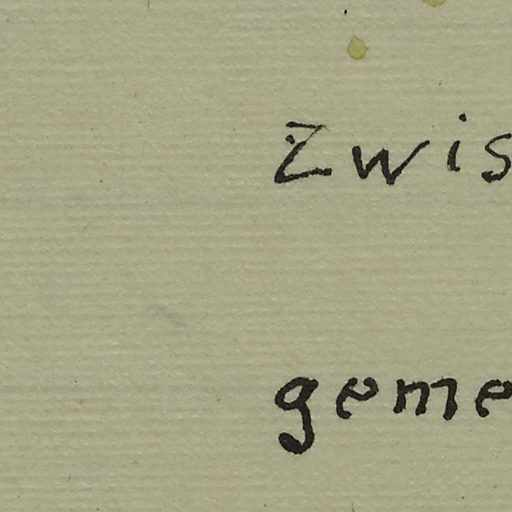 Zwis
geme